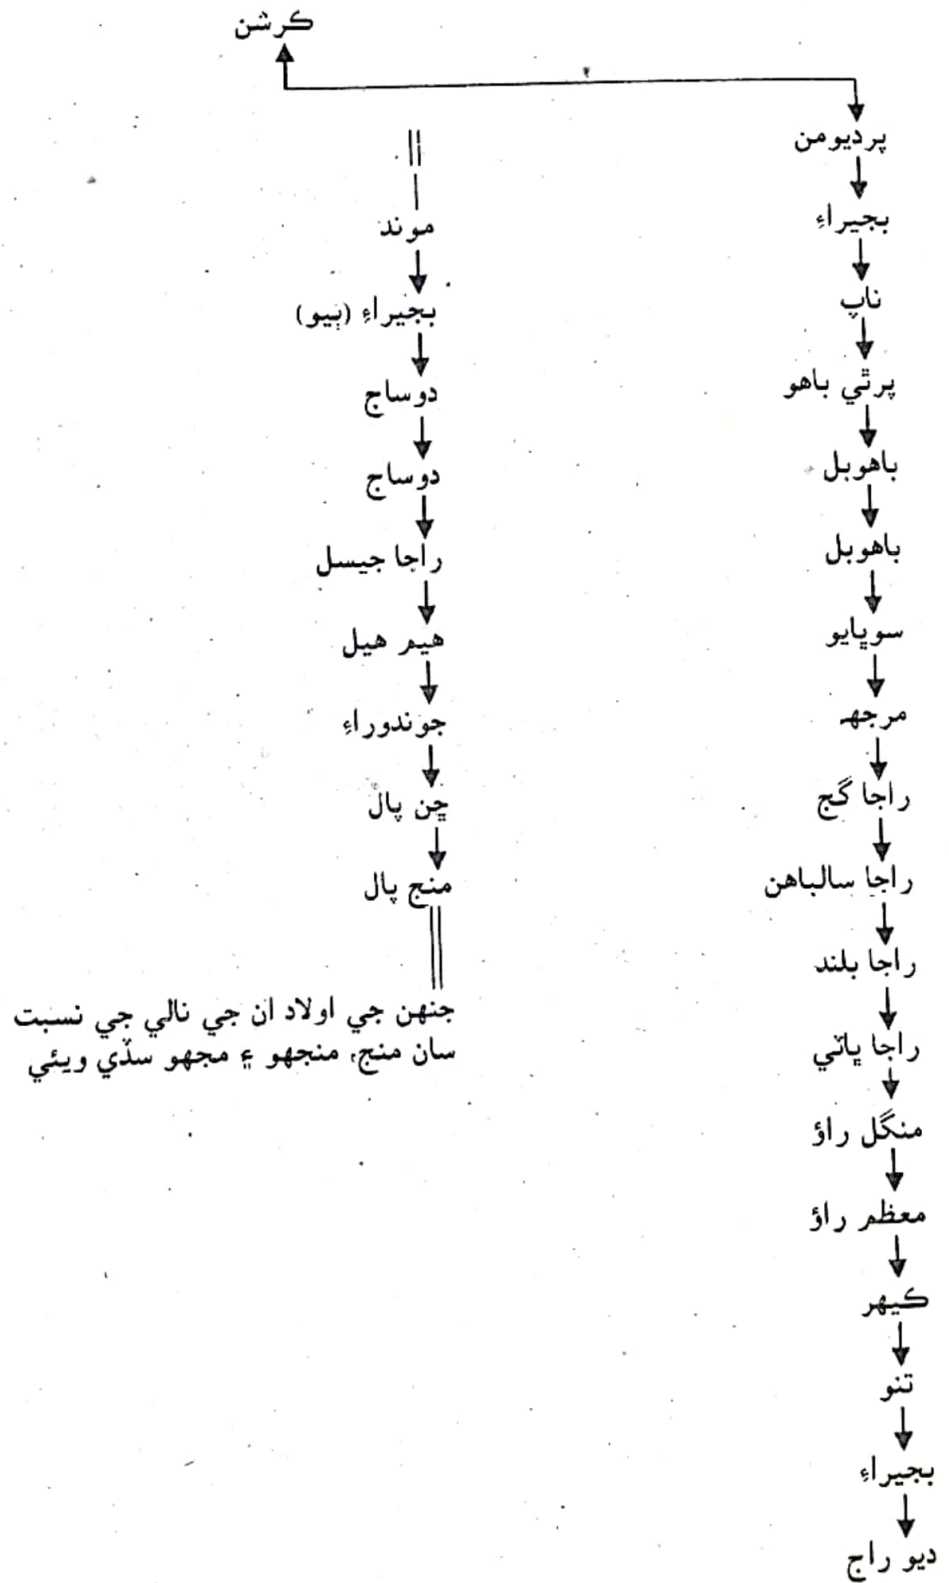 ڪرشن
پرديومن
بجيراءِ
ناپ
پرٿي باهو
باهوبل
باهوبل
سوڀايو
مرجهہ
راجا گج
راجا سالباهن
راجا بلند
راجا ڀاٽي
منگل راؤ
معظم راؤ
ڪيهر
تنو
بجيراءِ
ديو راج
موند
بجيراءِ (ٻيو)
دوساج
دوساج
راجا جيسل
هيم هيل
جوندوراءِ
ڇن پال
منج پال
جنهن جي اولاد ان جي نالي جي نسبت
سان منج، منجهو ۽ مجهو سڏي ويئي